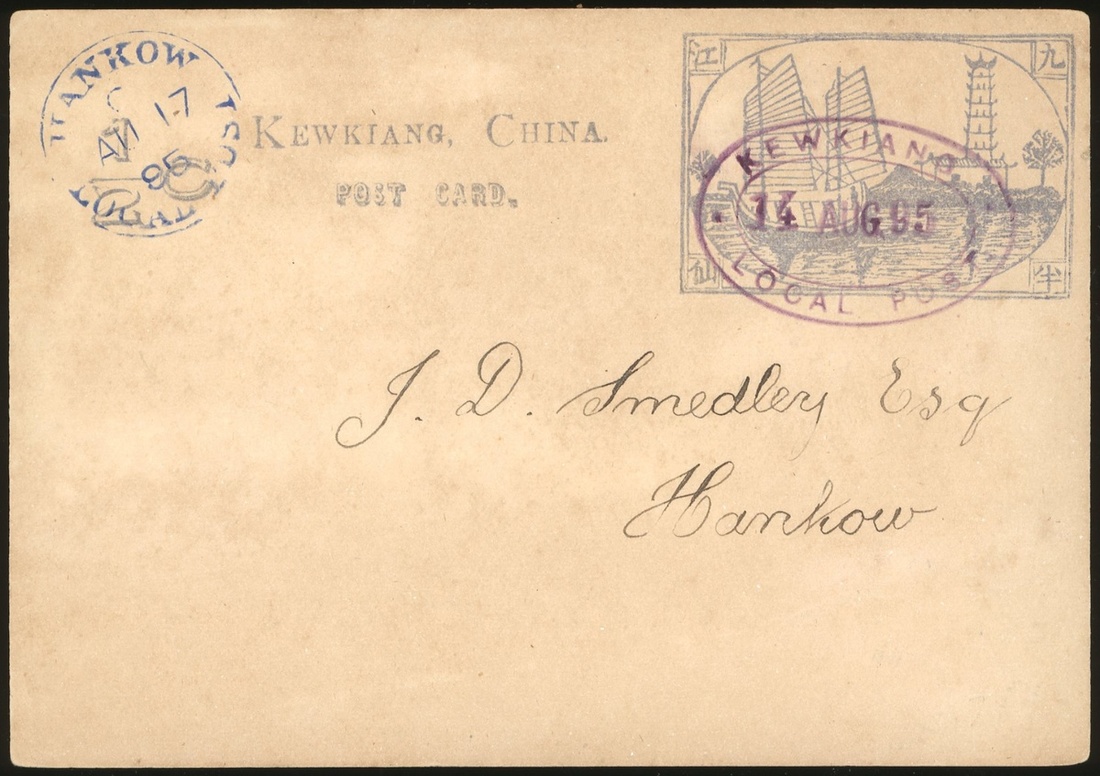 HANKOW
C
AM 17
95
LOCAL POST
1
2 C
KEWKIANG, CHINA.
POST CARD.
江 九
仙 半
KEWKIANG
14 AUG 95
LOCAL POST
J. D. Smedley Esq
Hankow